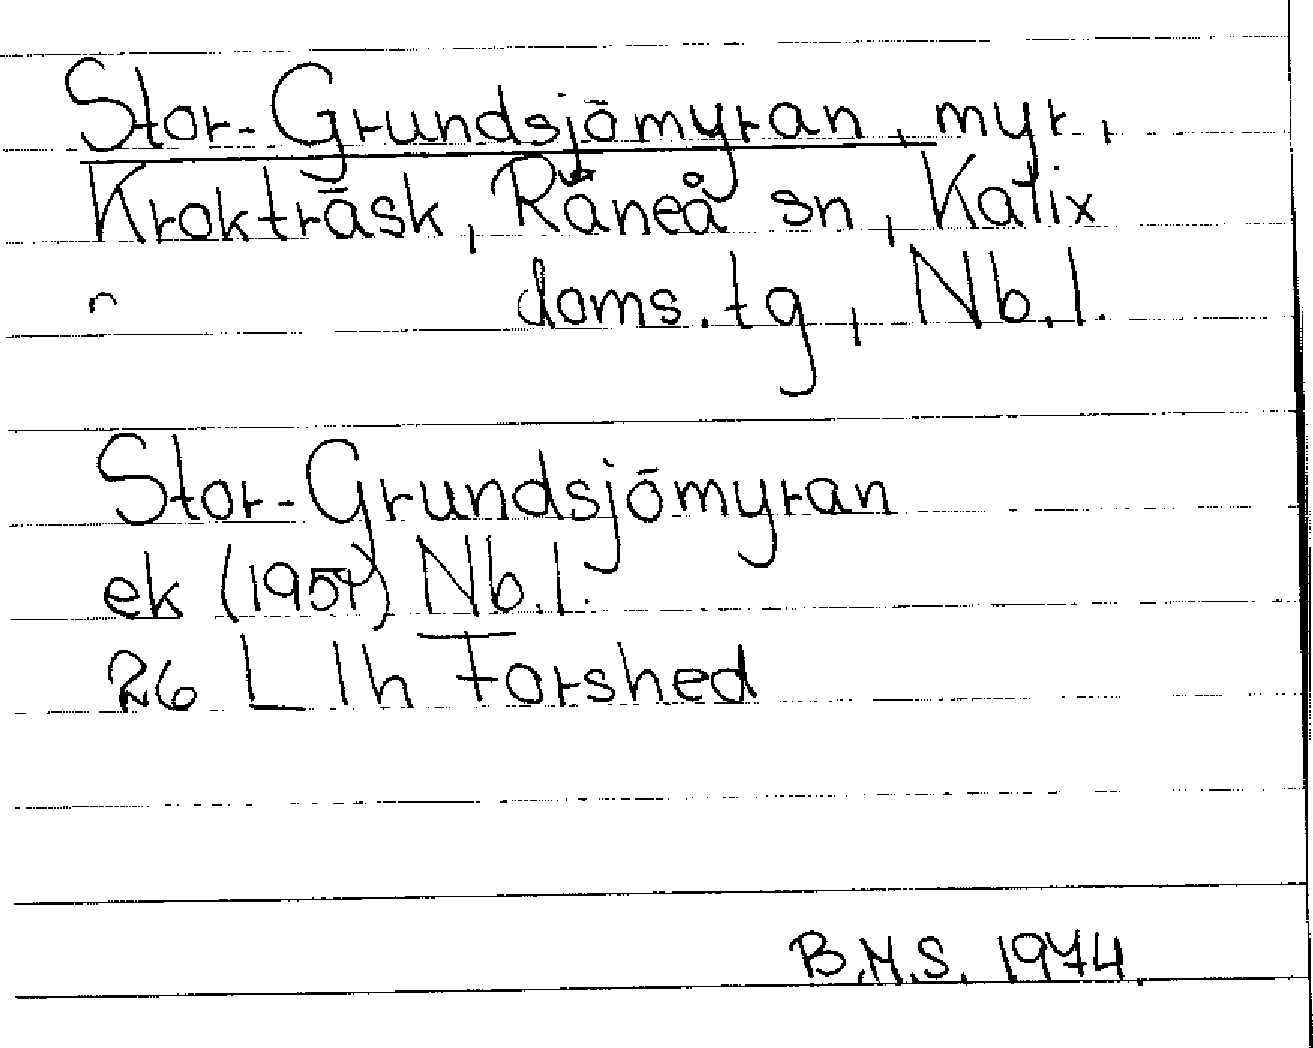 Stor-Grundsjömyran, myr.,
Krokträsk, Råneå sn, Kalix
doms.tg, Nb.l.
Stor-Grundsjömyran
ek (1957) Nb.l.
26 L 1h Forshed
B.M.S. 1974.